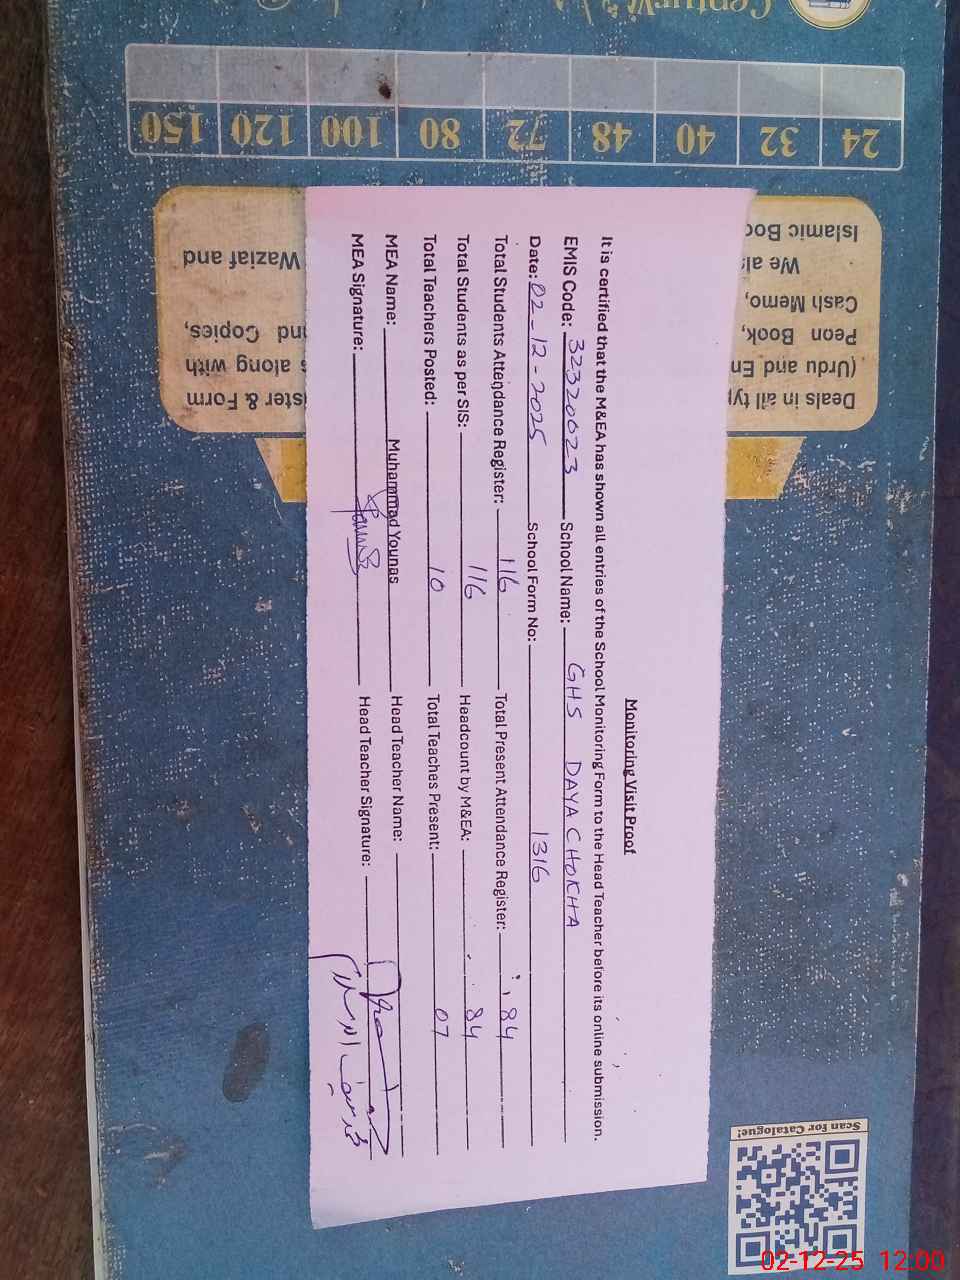 Monitoring Visit Proof
It is certified that the M&EA has shown all entries of the School Monitoring Form to the Head Teacher before its online submission.
EMIS Code: 32320023 School Name: GHS DAYA CHOKHA
Date: 02-12-2025 School Form No: 1316
Total Students Attendance Register: 116 Total Present Attendance Register: 84
Total Students as per SIS: 116 Headcount by M&EA: 84
Total Teachers Posted: 10 Total Teaches Present: 07
MEA Name: Muhammad Younas Head Teacher Name:
MEA Signature: Head Teacher Signature:
Deals in all
ster & Form
(Urdu and En
s along with
Peon Book,
nd Copies,
Cash Memo,
We als
Waziaf and
Islamic Boo
24 32 40 48 72 80 100 120 150
Century
Scan For Catalogue!
02-12-25 12:00